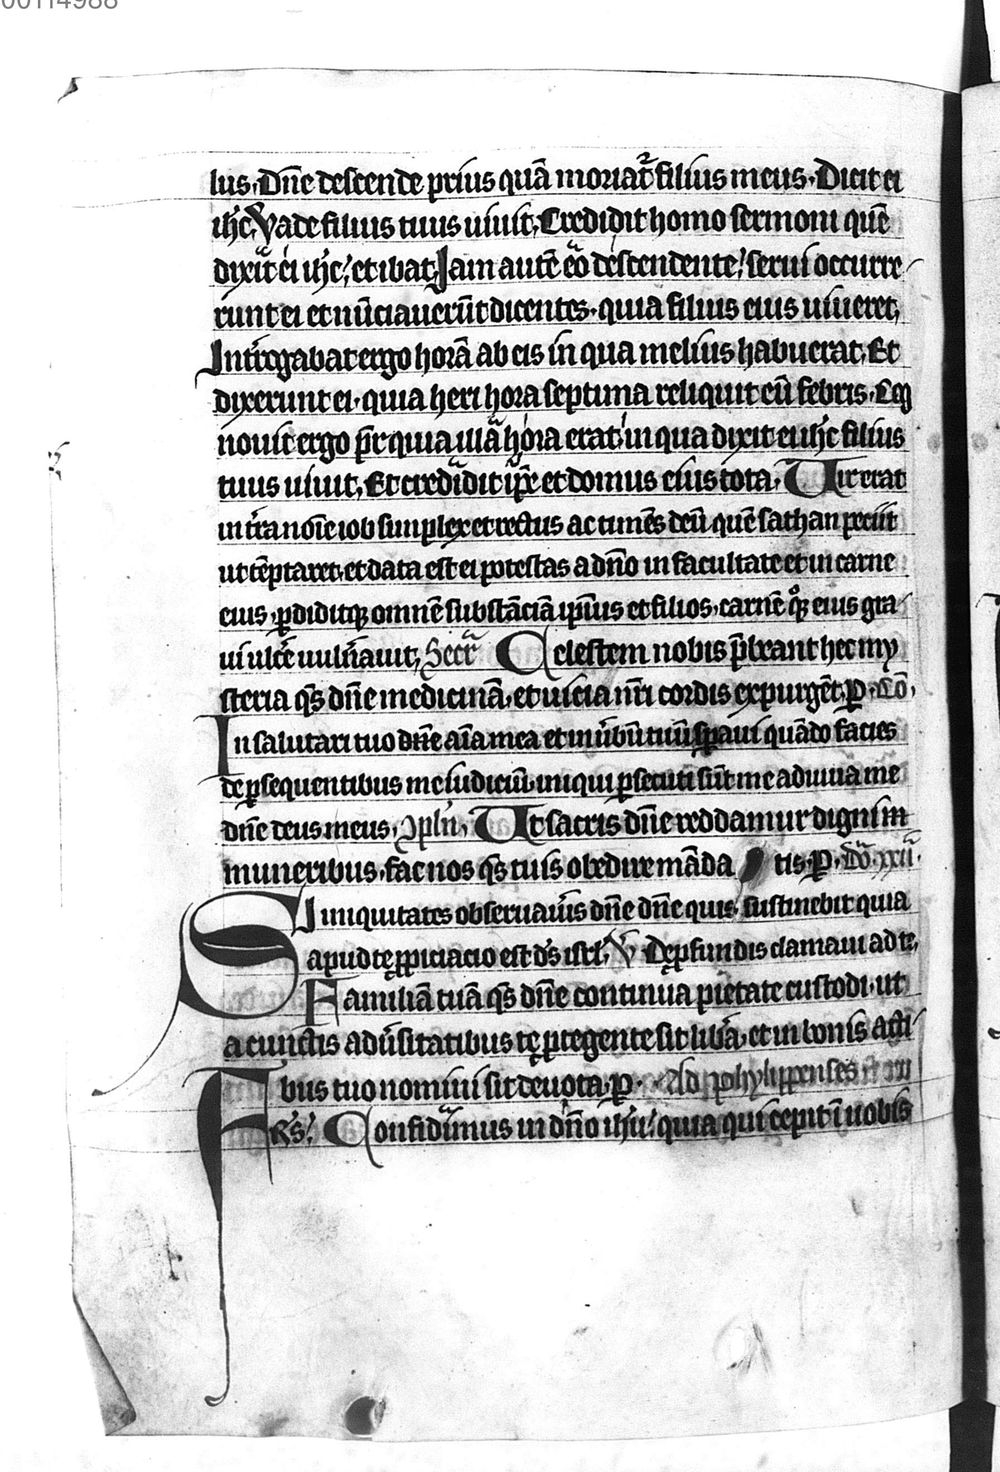 00114988
lus. Dn̄e descende prius quā moriat᷑ filius meus. Dicit ei
ih̄c. Vade filius tuus uiuit. Credidit homo sermoni quē
dixit ei ih̄c. et ibat. Jam autē eo descendente. serui occurre
runt ei et nūciauerūt dicentes. quia filius eius uiueret.
Int̄rogabat ergo horā ab eis in qua melius habuerat. Et
dixerunt ei. quia heri hora septima reliquit eū febris. Cog
nouit ergo p̄r quia illa hora erat in qua dixit ei ih̄c filius
tuus uiuit. Et credidit ip̄e et domus eius tota. Uir erat
in t̄ra noīe iob simplex et rectus ac timēs deū. quē sathan peciit
ut tēptaret. et data est ei potestas a dn̄o in facultate et in carne
eius. ꝑdiditqꝫ omnē substāciā ipsius et filios. carnē qͦꝫ eius gra
ui ulc̄e uuln̄auit. Secr̄ Celestem nobis p̄beant hec my
steria qs̄ dn̄e medicinā. et uicia nr̄i cordis expurgēt. ꝑ. Cō.
In salutari tuo dn̄e aīa mea et in ūbū tuū sꝑaui quādo facies
de ꝑsequentibus me iudiciū. iniqui ꝑsecuti sūt me adiuua me
dn̄e deus meus. Ꝯpln̄. Ut sacris dn̄e reddamur digni m
muneribus. fac nos qs̄ tuis obedire māda tis. ꝑ. Dō. xxii.
SI iniquitates obseruaūis dn̄e dn̄e quis sustinebit quia
apud te ꝓpiciacio est ds̄ isrl̄. V̄ De ꝓfundis clamaui ad te.
Familiā tuā qs̄ dn̄e continua pietate custodi. ut
a cunctis adūsitatibus te ꝓtegente sit lib̄a. et in bonis acti
bus tuo nomini sit deuota. ꝑ. Ad phylippenses
FRS̄. Confidimus in dn̄o ih̄u. quia qui cepit ī uobis